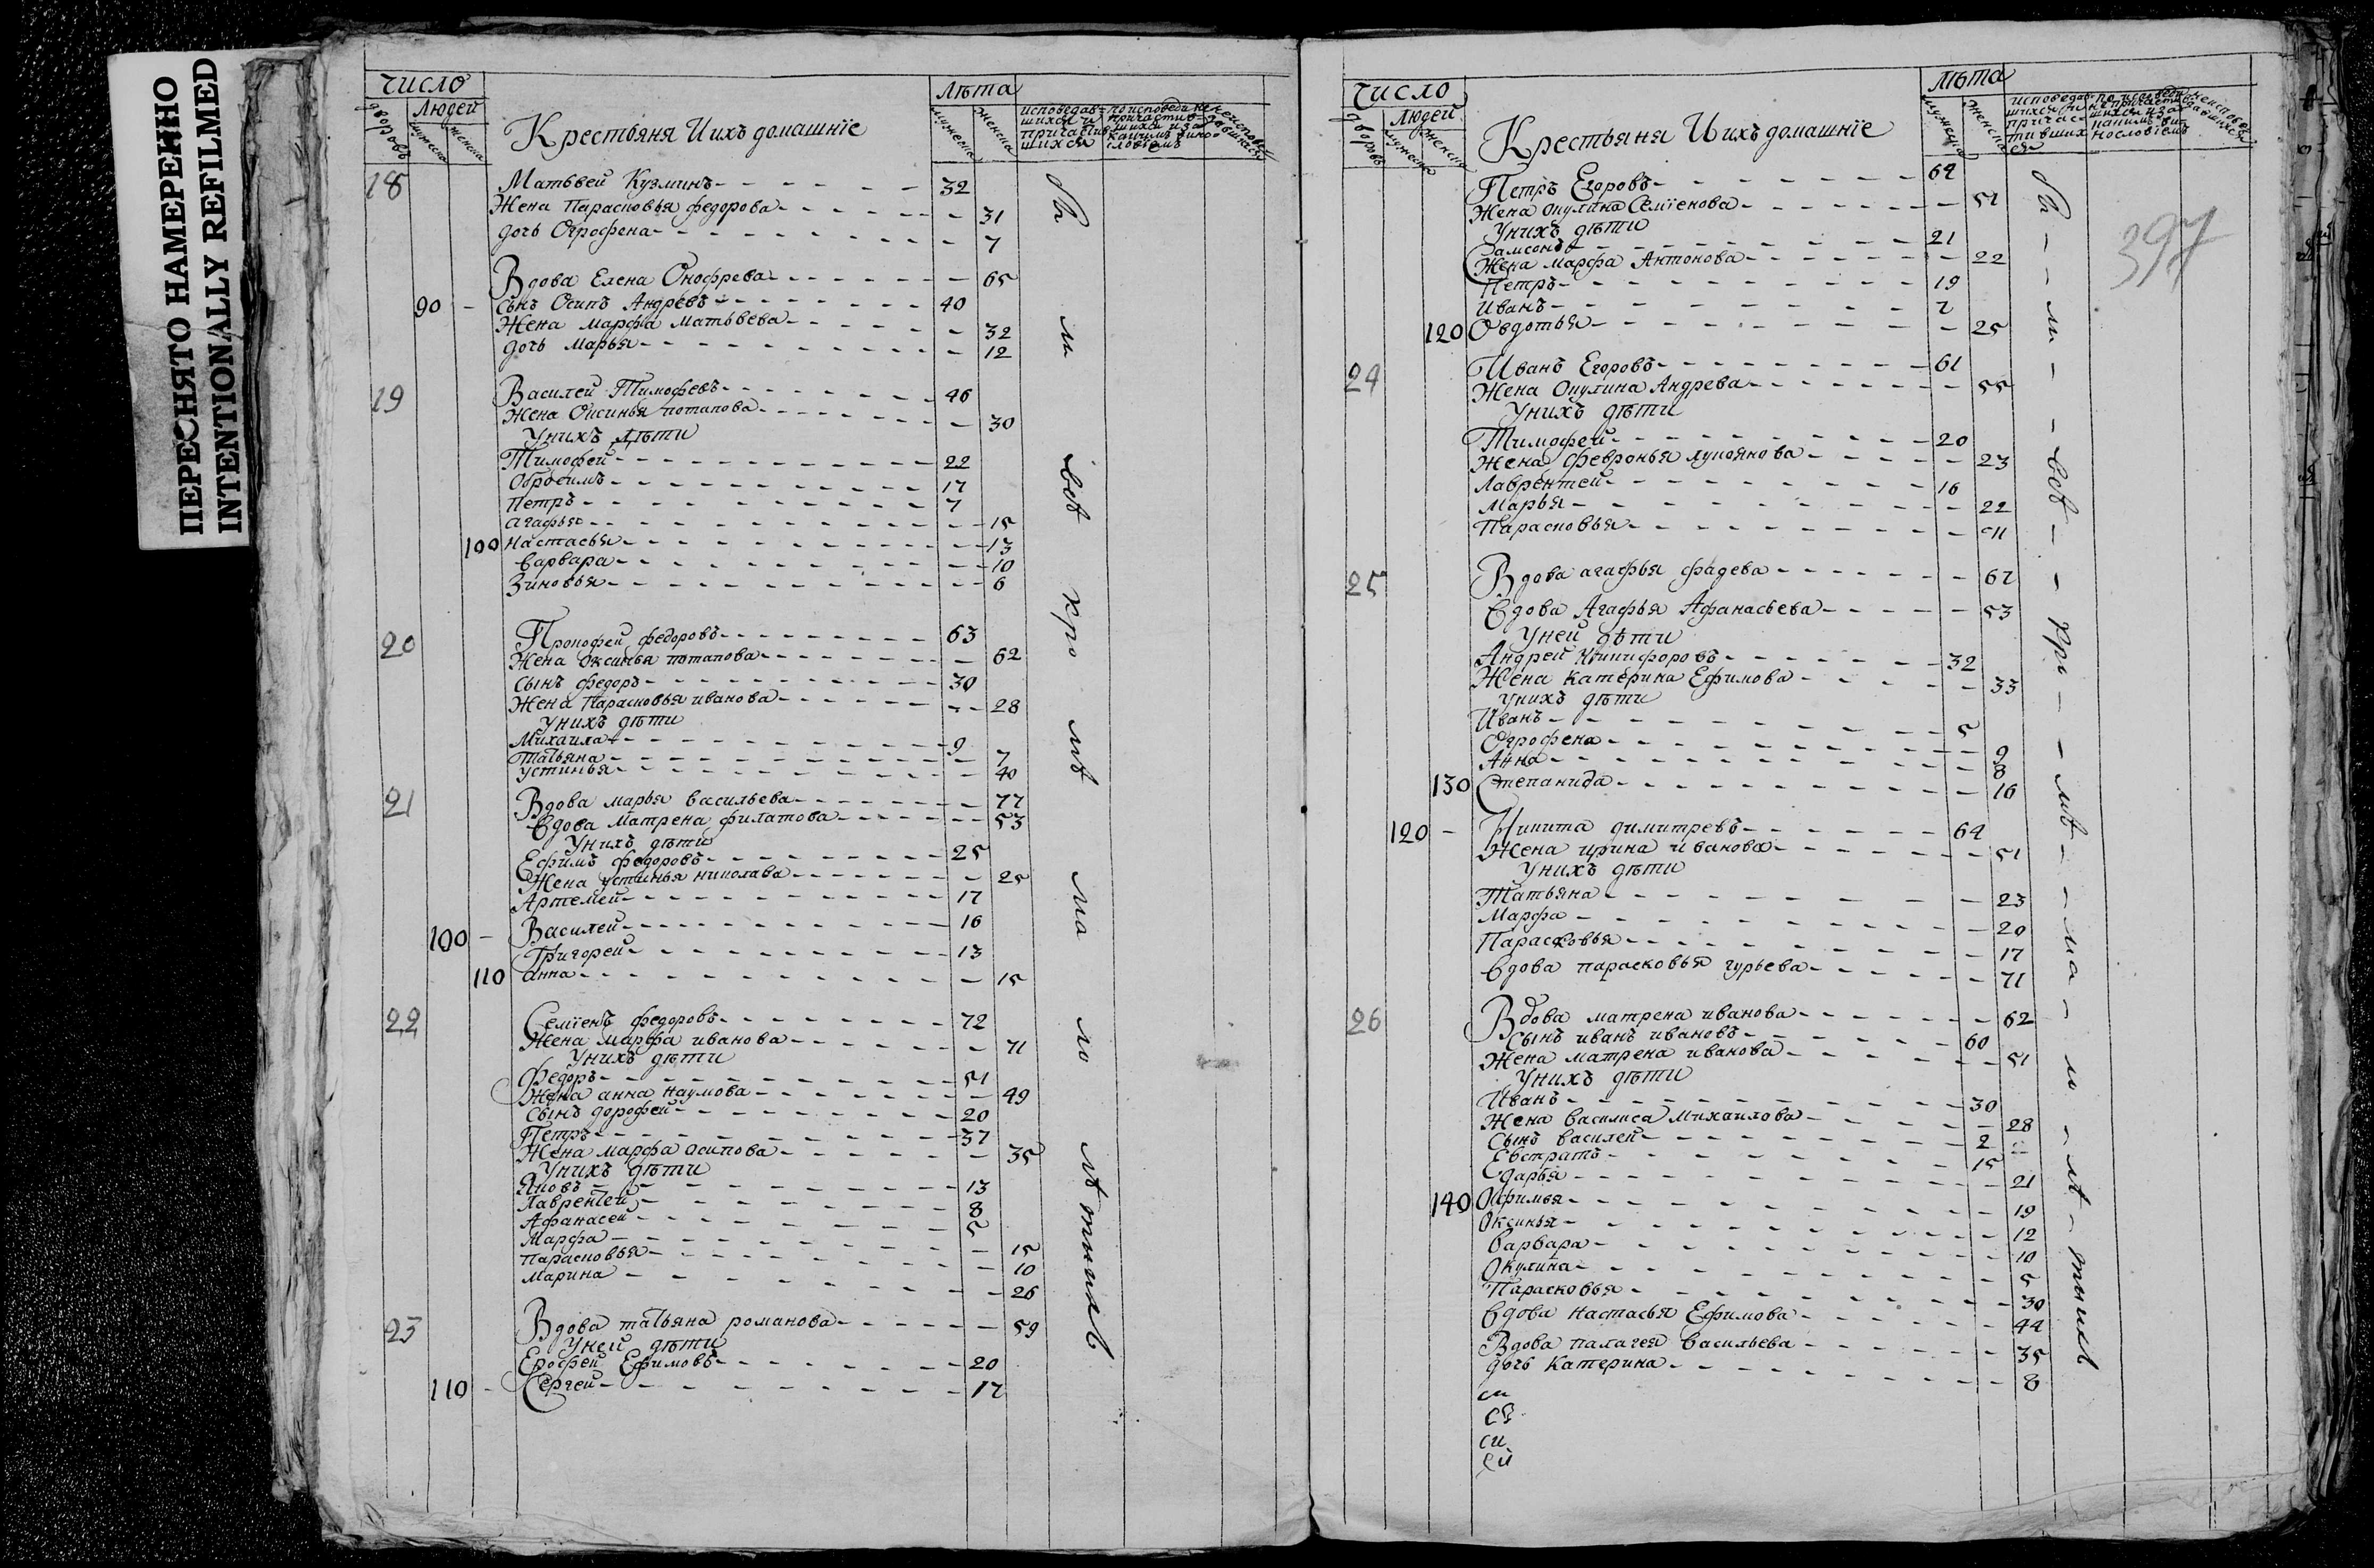 ПЕРЕСНЯТО НАМЕРЕННО
INTENTIONALLY REFILMED
число
лѣта
дворовъ
людей
мужеска
женска
Крестьяня Иихъ домашнїе
мужеска
женска
исповедав
шихся и
причастив
шихся
18 Матьвей Кузминъ 32
Жена Парасковья федорова 31
дочь Огрофена 7
Вдова Елена Онофрева 65
90 сынъ Осипъ Андревъ 40
Жена марфа матьвева 32
дочь марья 12
19 Василей Тимофевъ 46
Жена Оксинья потапова 30
Унихъ дѣти
Тимофей 22
Обросимъ 17
Петръ 7
агафья 15
100 настасья 13
варвара 10
Зиновья 6
20 Прокофей федоровъ 63
Жена Оксинья потапова 62
сынъ федоръ 30
Жена Парасковья иванова 28
Унихъ дѣти
Михаила 9
Татьяна 7
устинья 40
21 Вдова марья васильева 77
вдова матрена филатова 53
Унихъ дѣти
Ефимъ федоровъ 25
Жена устинья николава 25
Артемей 17
100 Василей 16
Григорей 13
110 анна 15
22 Семїенъ федоровъ 72
Жена марфа иванова 71
Унихъ дѣти
Федоръ 51
Жена анна наумова 49
сынъ дорофей 20
Петръ 37
Жена марфа осипова 35
Унихъ дѣти
Яковъ 13
Лаврентей 8
Афанасей 5
Марфа 15
парасковья 10
марина 26
23 Вдова татьяна романова 59
Уней дѣти
Ерофей Ефимовъ 20
110 Сергей 17
число
лѣта
дворовъ
людей
мужеска
женска
Крестьяня Иихъ домашнїе
мужеска
женска
исповедав
шихся и
причас
тивших
ся
397
Петръ Егоровъ 64
Жена Окулина Семїенова 51
Унихъ дѣти
Самсонъ 21
Жена марфа Антонова 22
Петръ 19
Иванъ 7
120 Овдотья 25
24 Иванъ Егоровъ 61
Жена Окулина Андрева 55
Унихъ дѣти
Тимофей 20
Жена Февронья лукоянова 23
Лаврентей 16
Марья 22
Парасковья 11
25 Вдова агафья фадева 67
вдова Агафья Афанасьева 53
Уней дѣти
Андрей Никифоровъ 32
Жена Катерина Ефимова 33
Унихъ дѣти
Иванъ 5
Огрофена 9
Анна 8
130 Степанида 16
120 Никита димитревъ 64
Жена ирина иванова 51
Унихъ дѣти
Татьяна 23
Марфа 20
Парасковья 17
вдова парасковья гурьева 71
26 Вдова матрена иванова 62
сынъ иванъ ивановъ 60
Жена матрена иванова 51
Унихъ дѣти
Иванъ 30
Жена василиса Михаилова 28
Сынъ василей 2
Евстратъ 15
дарья 21
140 Офимья 19
Оксинья 12
варвара 10
Окулина 5
Парасковья 30
вдова настасья Ефимова 44
Вдова палагея васильева 35
дочь Катерина 8